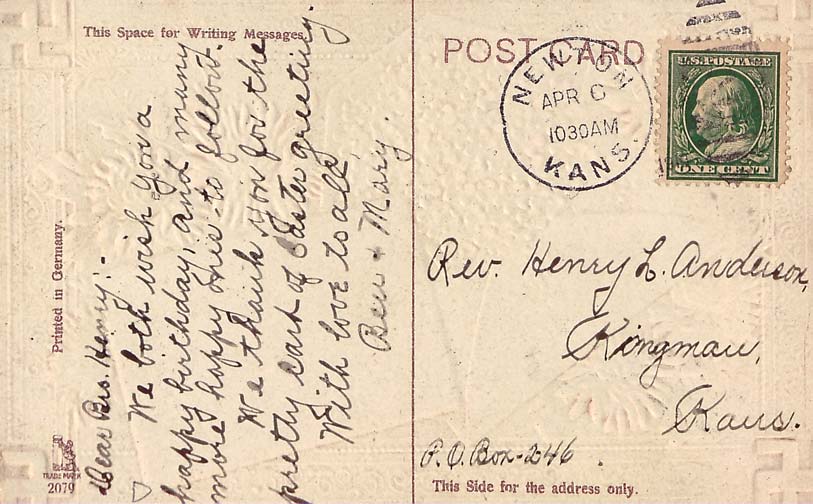 This Space for Writing Messages.
Dear Bro. Henry:-
We both wish you a
happy birthday, and many
more happy ones to follow.
We thank you for the
pretty card of Easter greeting.
With love to all,
Ben + Mary.
Printed in Germany.
TRADE MARK
2079
POST CARD
NEWTON
APR 6
1030AM
KANS.
U.S. POSTAGE
ONE CENT
Rev. Henry L. Anderson,
Kingman,
Kans.
P.O. Box-246.
This Side for the address only.